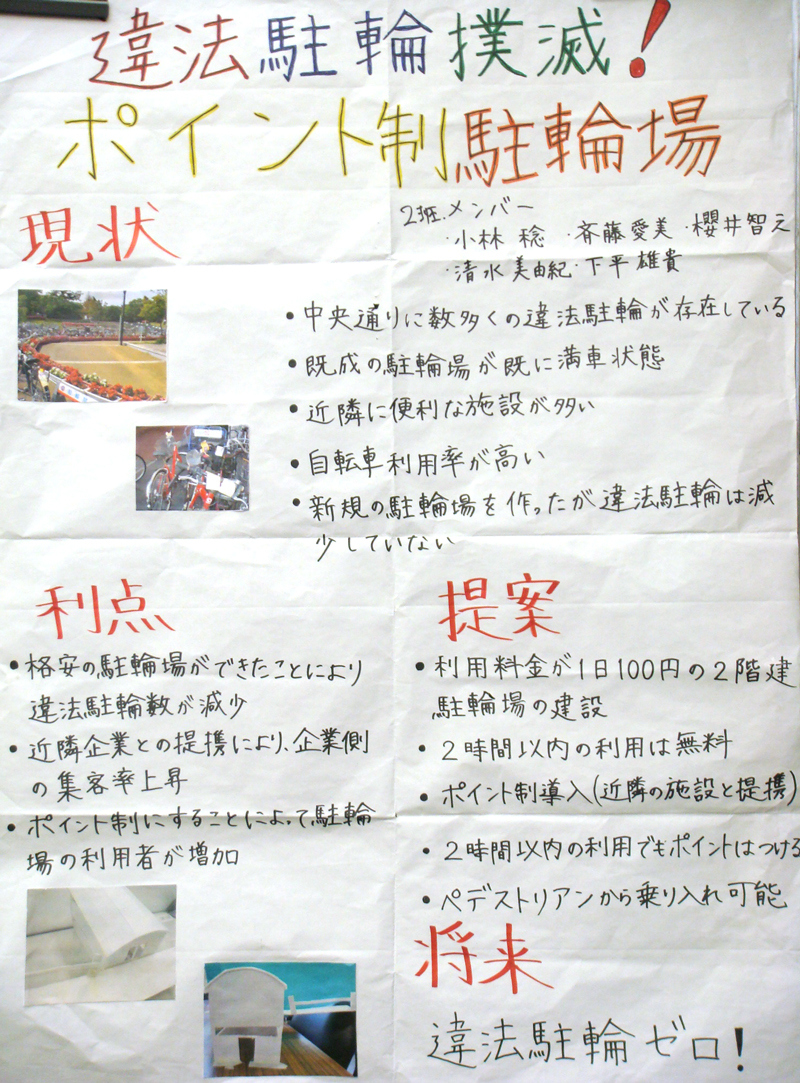 違法駐輪撲滅!
ポイント制駐輪場
2班.メンバー
・小林 稔 ・斉藤愛美 ・櫻井智え
・清水美由紀・下平雄貴
現状
・中央通りに数多くの違法駐輪が存在している
・既成の駐輪場が既に満車状態
・近隣に便利な施設が多い
・自転車利用率が高い
・新規の駐輪場を作ったが違法駐輪は減
少していない
利点
・格安の駐輪場ができたことにより
違法駐輪数が減少
・近隣企業との提携により、企業側
の集客率上昇
・ポイント制にすることによって駐輪
場の利用者が増加
提案
・利用料金が1日100円の2階建
駐輪場の建設
・2時間以内の利用は無料
・ポイント制導入(近隣の施設と提携)
・2時間以内の利用でもポイントはつける
・ペデストリアンから乗り入れ可能
将来
違法駐輪ゼロ!